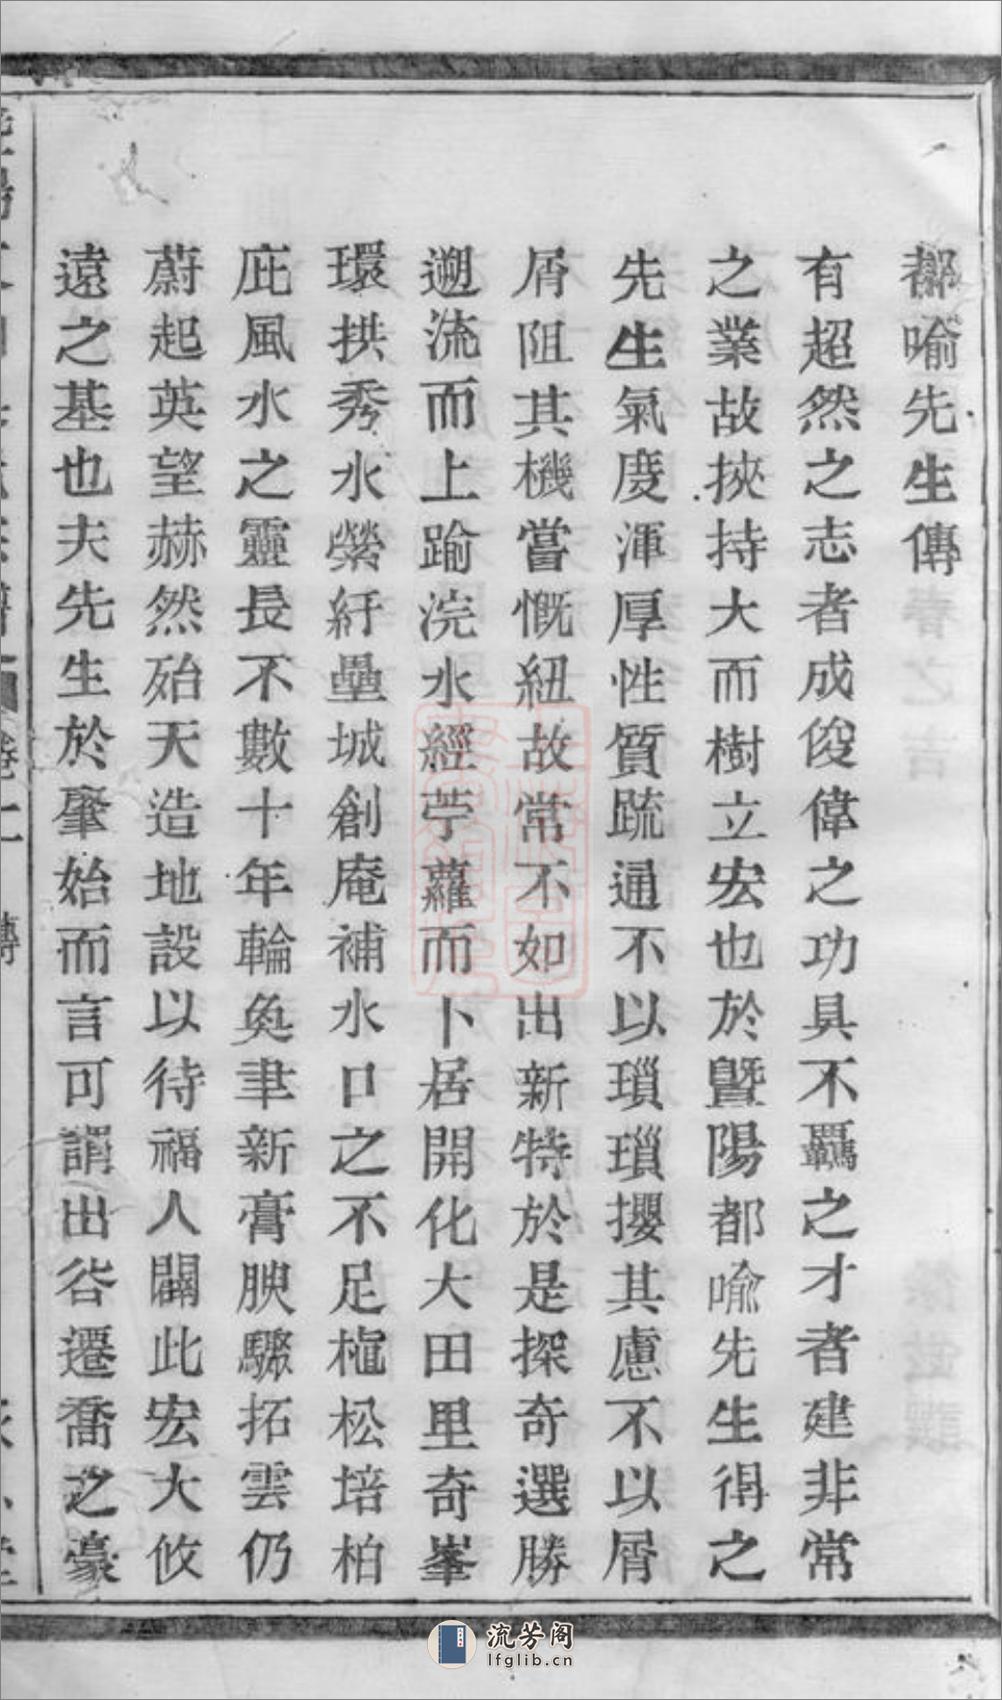 都喻先生傳
有超然之志者成俊偉之功具不羈之才者建非常
之業故挾持大而樹立宏也於暨陽都喻先生得之
先生氣度渾厚性質疏通不以瑣瑣攖其慮不以屑
屑阻其機嘗慨紐故常不如出新特於是探奇選勝
遡流而上踰浣水經苧蘿而卜居開化大田里奇峯
環拱秀水縈紆壘城創庵補水口之不足植松培柏
庇風水之靈長不數十年輪奐聿新膏腴驟拓雲仍
蔚起英望赫然殆天造地設以待福人闢此宏大攸
遠之基也夫先生於肇始而言可謂出谷遷喬之豪
流芳阁
lfglib.cn